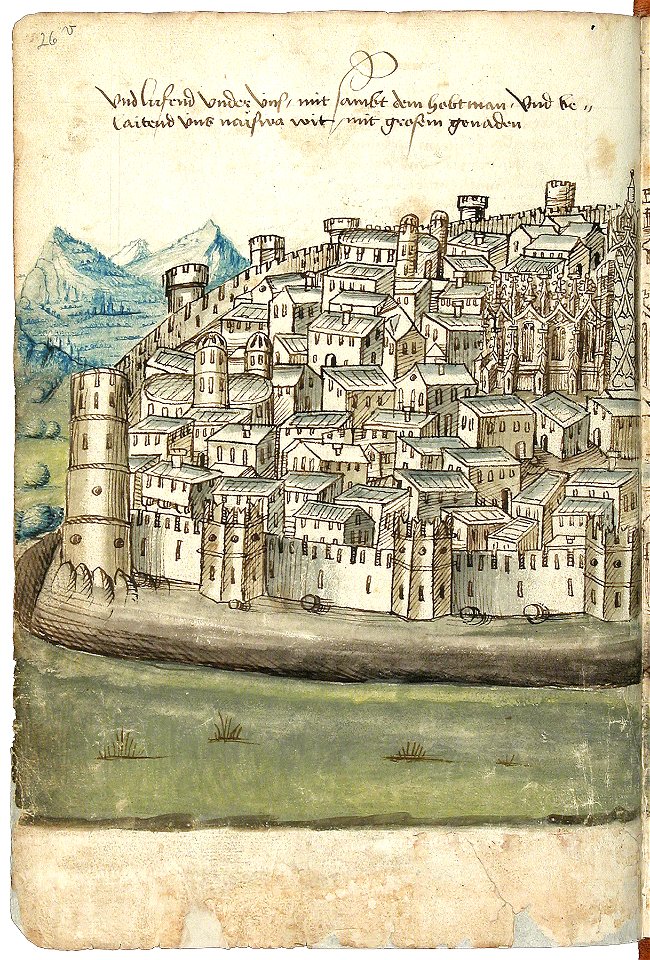 26 v
Vnd lufend vnder vns, mit sambt dem hobtman, vnd be„
laitend vns wit, mit grosem genaden